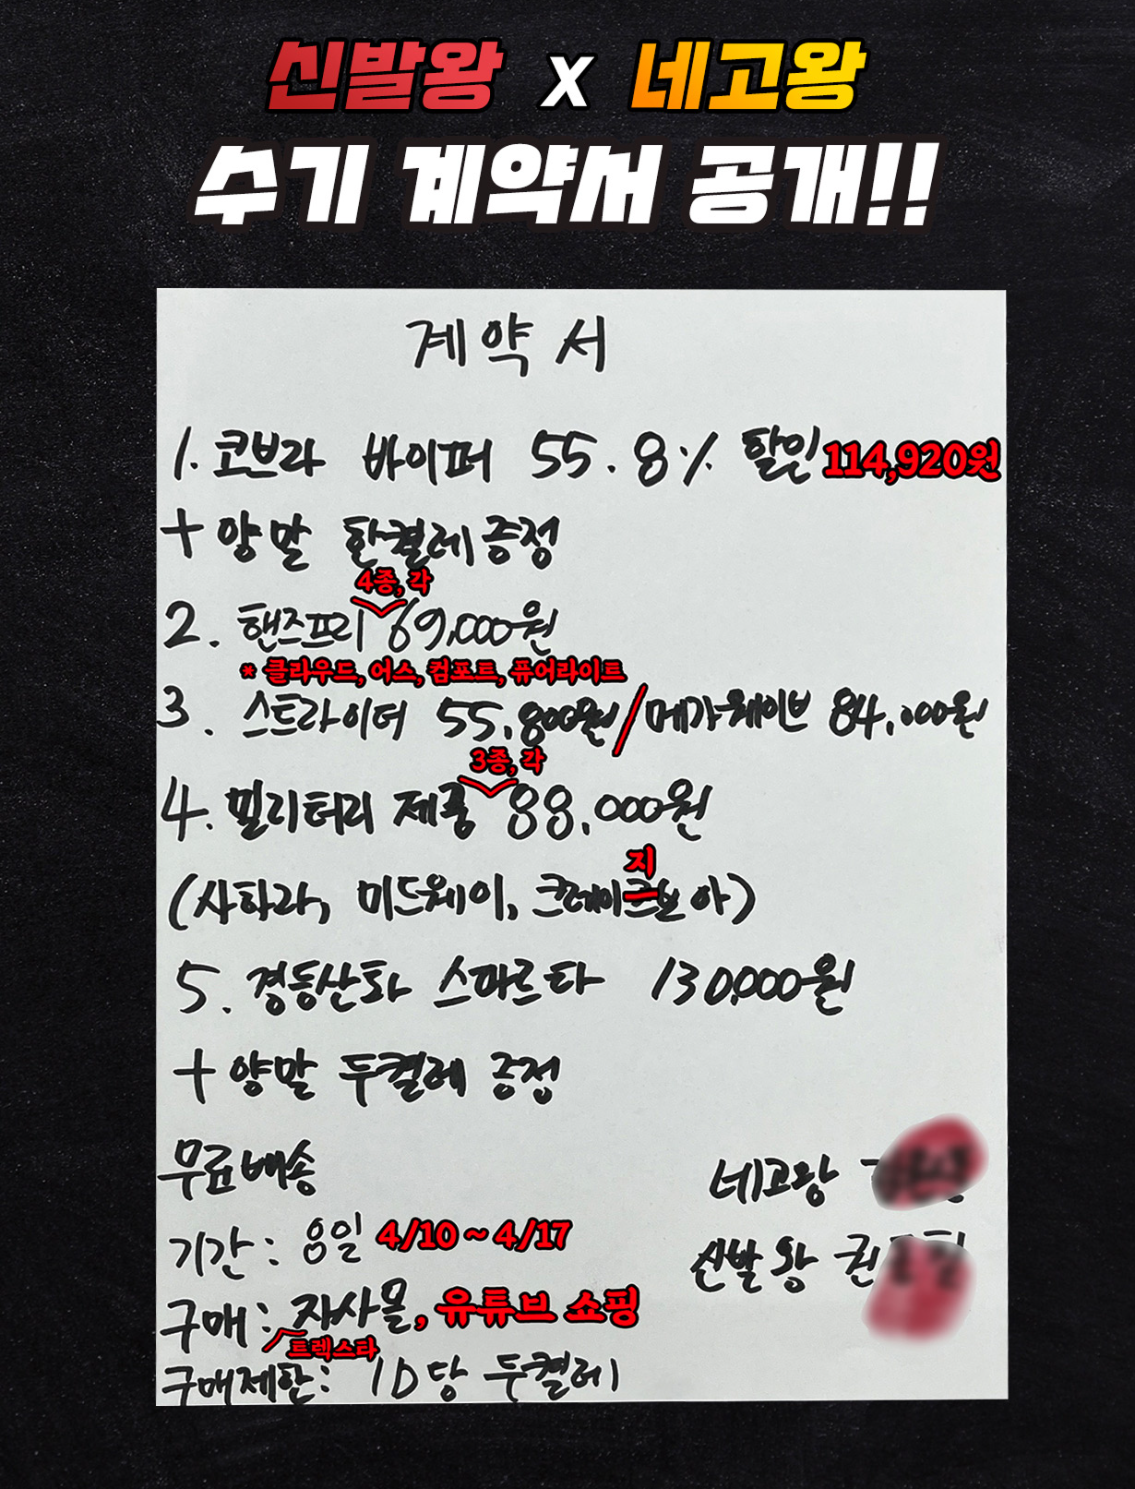 신발왕 x 네고왕
수기 계약서 공개!!
계약서
1. 코브라 바이퍼 55.8% 할인 114,920원
+ 양말 한켤레 증정
4종, 각
2. 핸즈프리 69,000원
* 클라우드, 어스, 컴포트, 퓨어라이트
3. 스트라이더 55,800원 / 메가웨이브 84,000원
3종, 각
4. 밀리터리 제품 88,000원
지
(사하라, 미드웨이, 크레이크보아)
5. 경등산화 스파르타 130,000원
+ 양말 두켤레 증정
무료배송
네고왕
기간: 8일 4/10 ~ 4/17
신발왕 권
구매: 자사몰, 유튜브 쇼핑
트렉스타
구매제한: ID당 두켤레